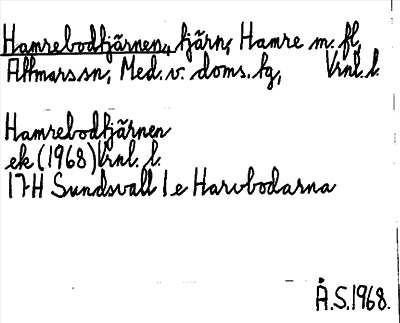 Hamrebodtjärnen, tjärn, Hamre m. fl,
Attmars sn, Med. v. doms. tg, Vrnl. l.
Hamrebodtjärnen
ek (1968) Vrnl. l.
17H Sundsvall 1 e Harvbodarna
Å.S. 1968.